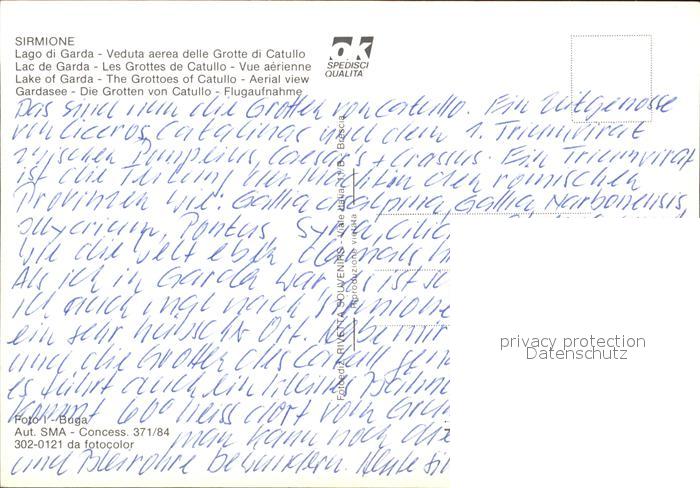 SIRMIONE
Lago di Garda - Veduta aerea delle Grotte di Catullo
Lac de Garda - Les Grottes de Catullo - Vue aérienne
Lake of Garda - The Grottoes of Catullo - Aerial view
Gardasee - Die Grotten von Catullo - Flugaufnahme
ok
SPEDISCI
QUALITÀ
Das sind nun die Grotten von Catullo. Ein Zeitgenosse
von Ciceros, Catalinas und dem 1. Triumvirat
zwischen Pompeius, Caesar + Crassus. Ein Triumvirat
ist die Teilung der in den römischen
Provinzen wie: Gallia cisalpina, Gallia Narbonensis,
Illyricum, Pontus, Syria,
wie die Welt eben damals
Als ich in Garda war, es ist
ich auch nach Sirmione
ein sehr hübscher Ort.
und die Grotten des Catull
es führt auch ein kleines
kommt 60° heiss dort vom
man kann noch die
und Bleirohre bewundern. Heute
Fotoedit. RIVETTA SOUVENIRS - Viale Italia, - Brescia
Riproduzione vietata
privacy protection
Datenschutz
Foto I - Buga
Aut. SMA - Concess. 371/84
302-0121 da fotocolor